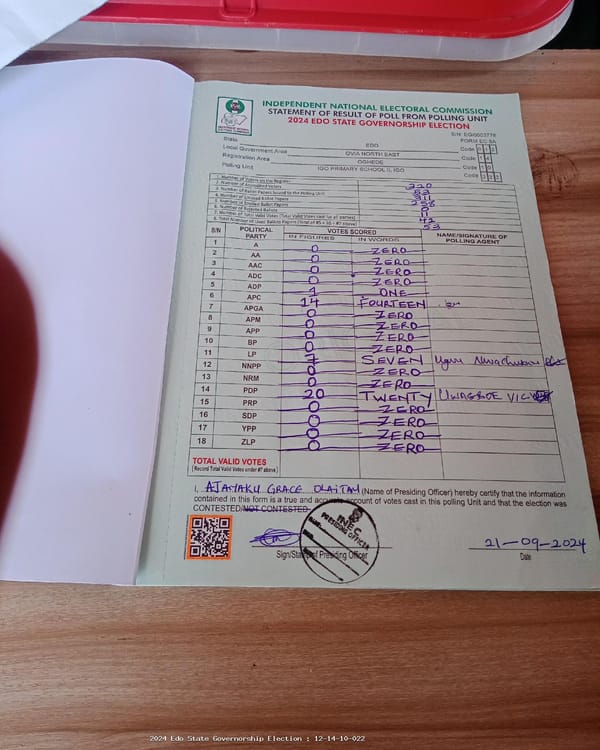 INDEPENDENT NATIONAL ELECTORAL COMMISSION
STATEMENT OF RESULT OF POLL FROM POLLING UNIT
2024 EDO STATE GOVERNORSHIP ELECTION
FORM EC 8A
State EDO Code
Local Government Area OVIA NORTH EAST Code
Registration Area OGHEDE Code
Polling Unit IGO PRIMARY SCHOOL II, IGO Code
1. Number of Voters on the Register 220
2. Number of Accredited Voters
3. Number of Ballot Papers Issued to the Polling Unit
4. Number of Unused Ballot Papers 258
5. Number of Spoiled Ballot Papers 0
6. Number of Rejected Ballots 11
7. Number of Total Valid Votes (Total Valid Votes cast for all parties) 42
8. Total Number of Used Ballot Papers (Total of #5 + #6 + #7 above) 53
S/N POLITICAL PARTY VOTES SCORED NAME/SIGNATURE OF POLLING AGENT
IN FIGURES IN WORDS
1 A 0 ZERO
2 AA 0 ZERO
3 AAC 0 ZERO
4 ADC 0 ZERO
5 ADP 1 ONE
6 APC 14 FOURTEEN
7 APGA 0 ZERO
8 APM 0 ZERO
9 APP 0 ZERO
10 BP 0 ZERO
11 LP 7 SEVEN
12 NNPP 0 ZERO
13 NRM 0 ZERO
14 PDP 20 TWENTY
15 PRP 0 ZERO
16 SDP 0 ZERO
17 YPP 0 ZERO
18 ZLP 0 ZERO
TOTAL VALID VOTES
(Record Total Valid Votes under #7 above)
I, GRACE (Name of Presiding Officer) hereby certify that the information
contained in this form is a true and accurate account of votes cast in this polling Unit and that the election was
CONTESTED/NOT CONTESTED.
INEC
PRESIDING OFFICER
21-09-2024
Sign/Stamp of Presiding Officer Date
2024 Edo State Governorship Election : 12-14-10-022